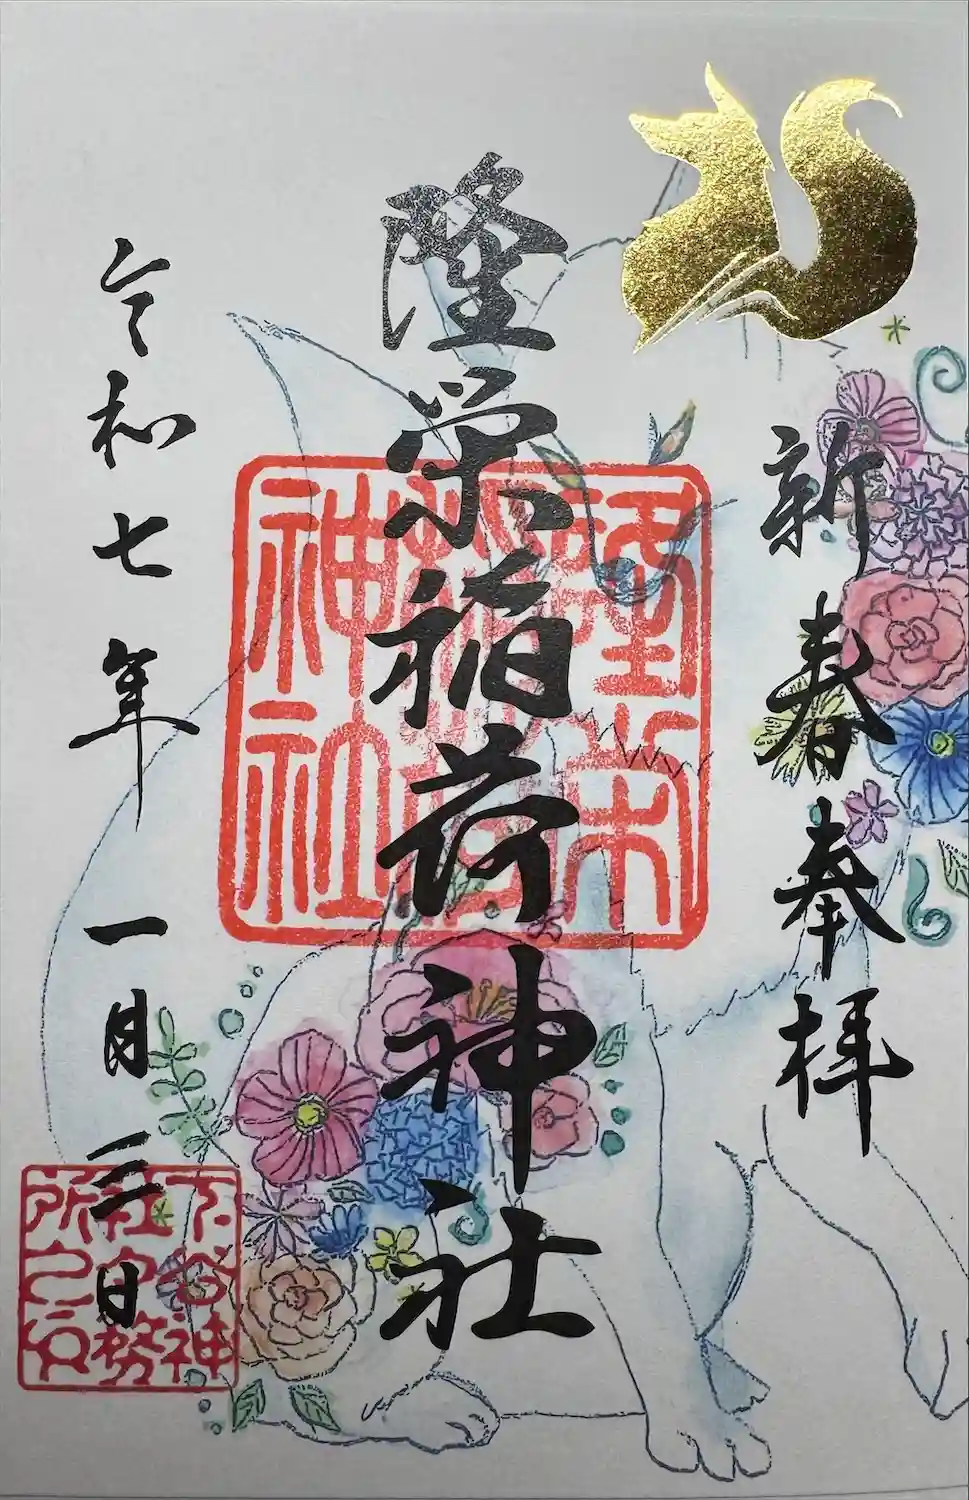 新春奉拝
隆栄稲荷神社
令和七年一月三日
下谷神
社社務
所之印